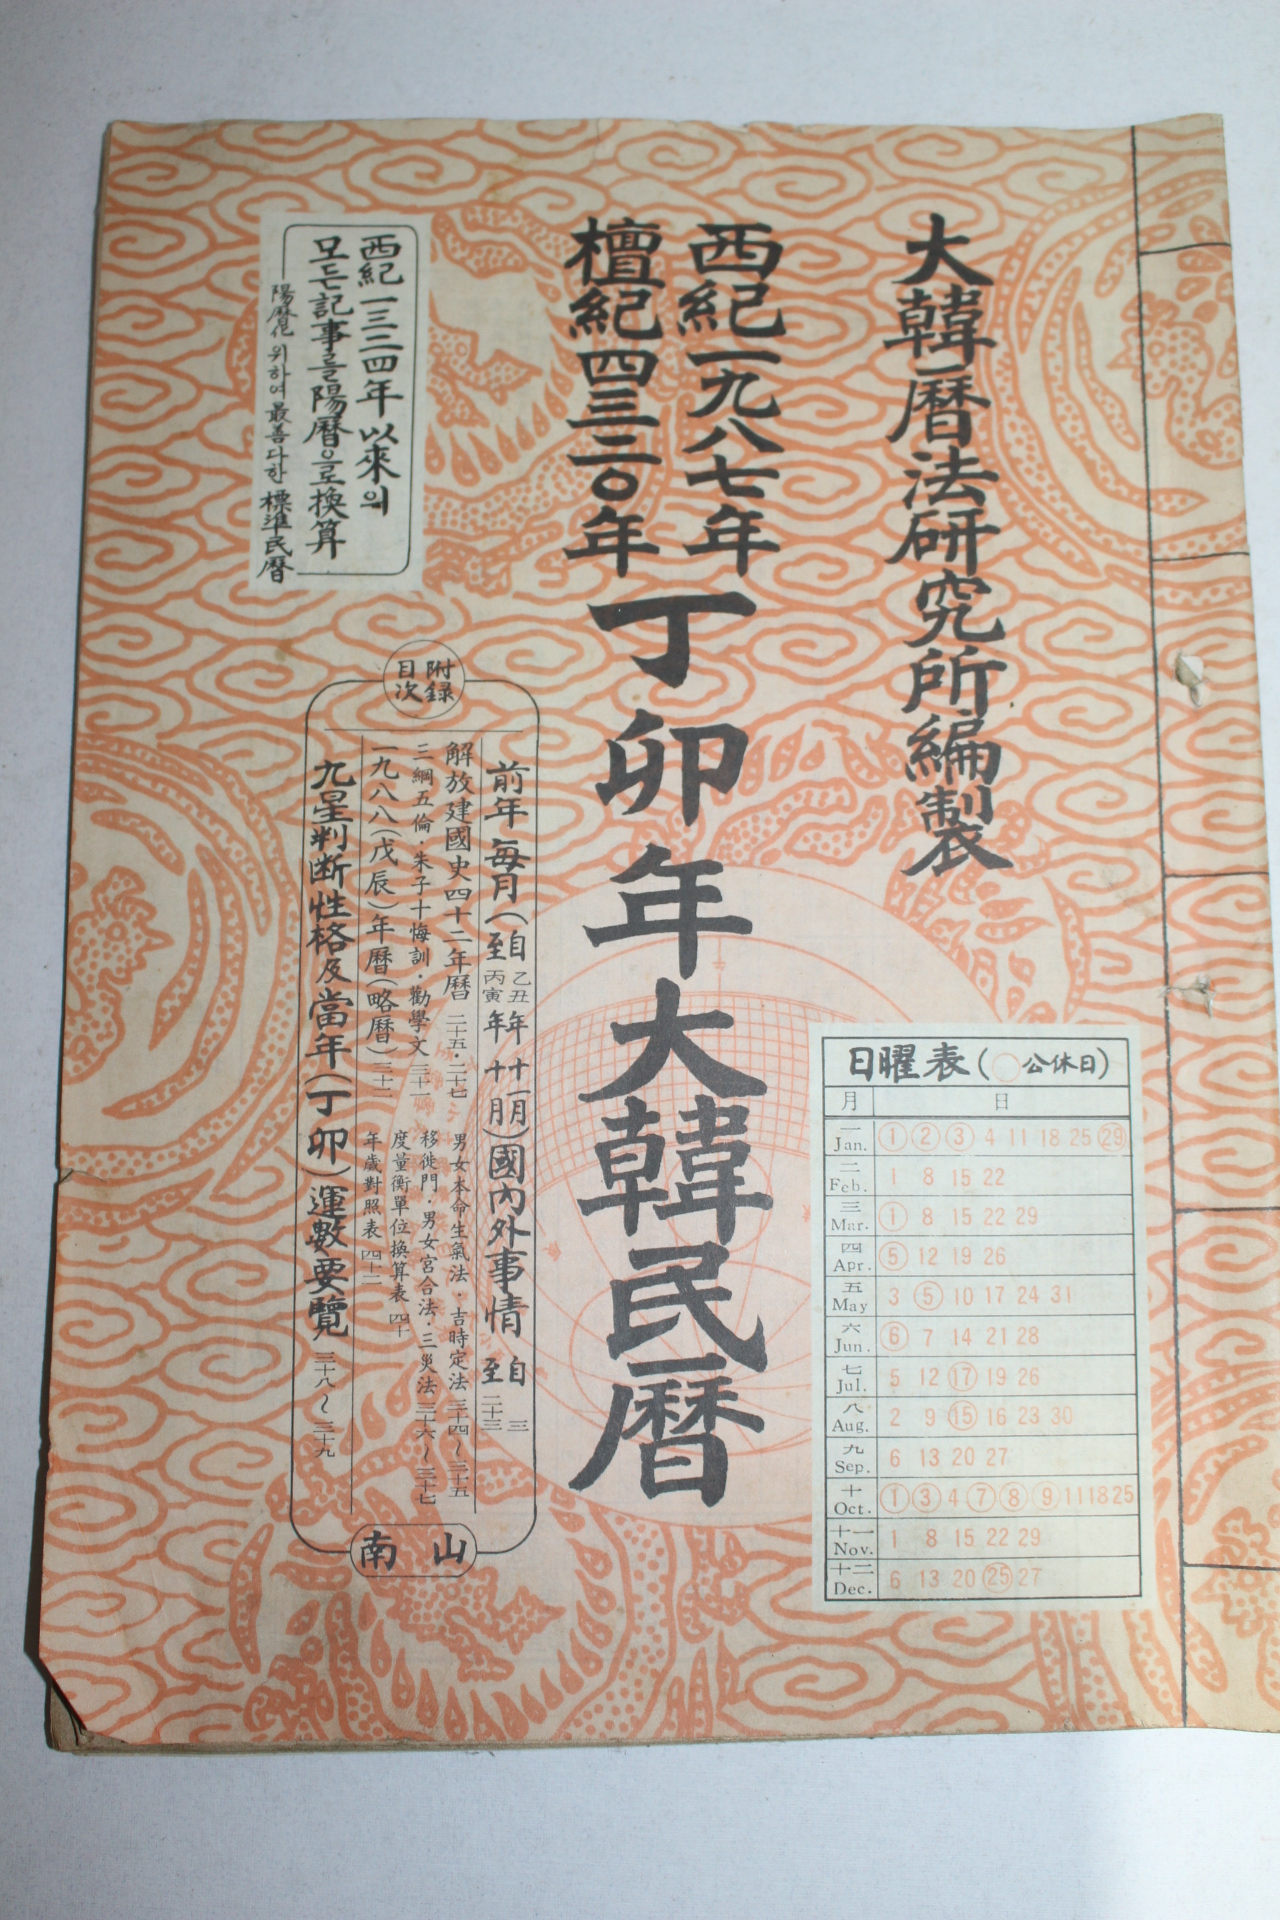 大韓曆法研究所編製
西紀一九八七年
檀紀四三二〇年
丁卯年大韓民曆
西紀一三二四年以來의
모든記事를陽曆으로換算
위하여最善다한標準民曆
附錄
目次
前年每月(自乙丑年十一月
至丙寅年十月)國內外事情 自三
至二十三
解放建國史四十二年曆 二十五·二十七
男女本命生氣法·吉時定法 三十四~三十五
三綱五倫·朱子十悔訓·勸學文 三十一
移徙門·男女宮合法·三災法 三十六~三十七
一九八八(戊辰)年曆(略曆) 三十二
度量衡單位換算表 四十
年歲對照表 四十二
九星判斷性格及當年(丁卯)運數要覽 三十八~三十九
南山
日曜表(○公休日)
月 日
一 Jan. ① ② ③ 4 11 18 25 ㉙
二 Feb. 1 8 15 22
三 Mar. ① 8 15 22 29
四 Apr. ⑤ 12 19 26
五 May 3 ⑤ 10 17 24 31
六 Jun. ⑥ 7 14 21 28
七 Jul. 5 12 ⑰ 19 26
八 Aug. 2 9 ⑮ 16 23 30
九 Sep. 6 13 20 27
十 Oct. ① ③ 4 ⑦ ⑧ ⑨ 11 18 25
十一 Nov. 1 8 15 22 29
十二 Dec. 6 13 20 ㉕ 27